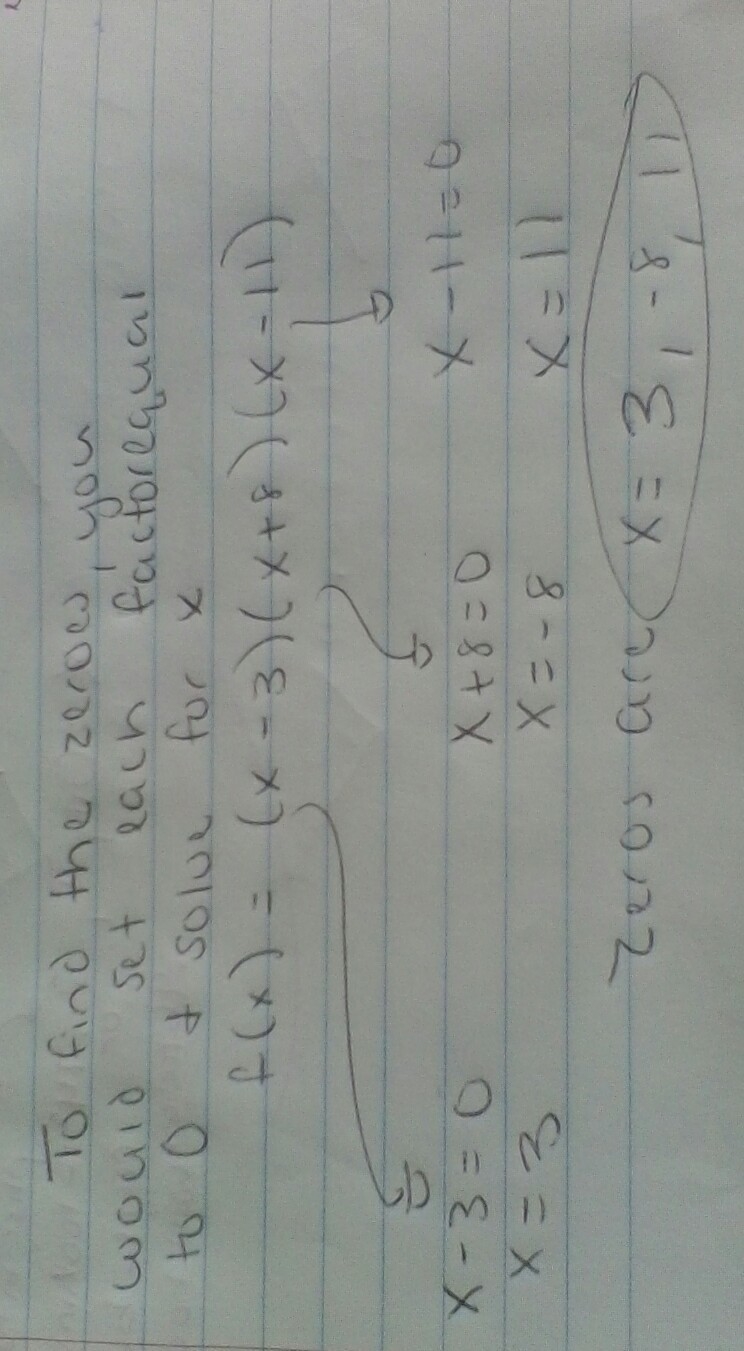 To find the zeroes, you
would set each factor equal
to 0 + solve for x
f(x) = (x-3)(x+8)(x-11)
x-3=0 x+8=0 x-11=0
x=3 x=-8 x=11
Zeros are x=3, -8, 11